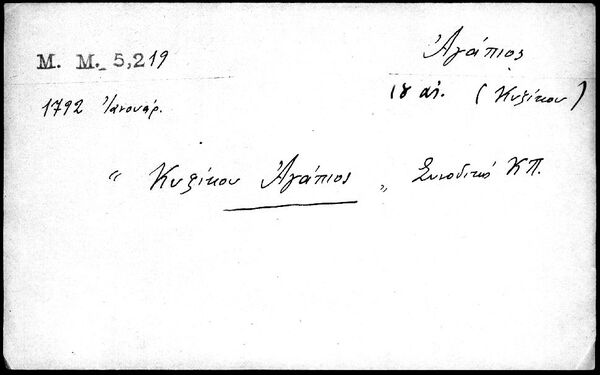 M. M. 5,219
Ἀγάπιος
1792 Ἰανουάρ.
18 αἰ. (Κυζίκου)
“ Κυζίκου Ἀγάπιος „ Συνοδικό ΚΠ.